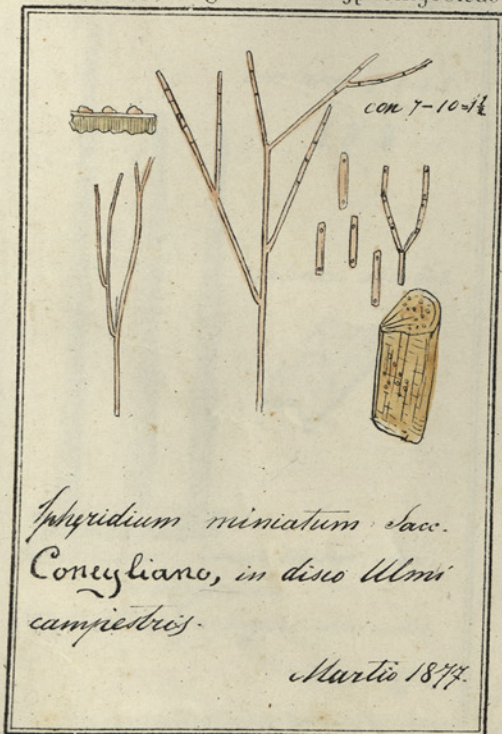 con 7-10=1½
Spheridium miniatum Sacc.
Conegliano, in disco Ulmi
campestris.
Martio 1877.